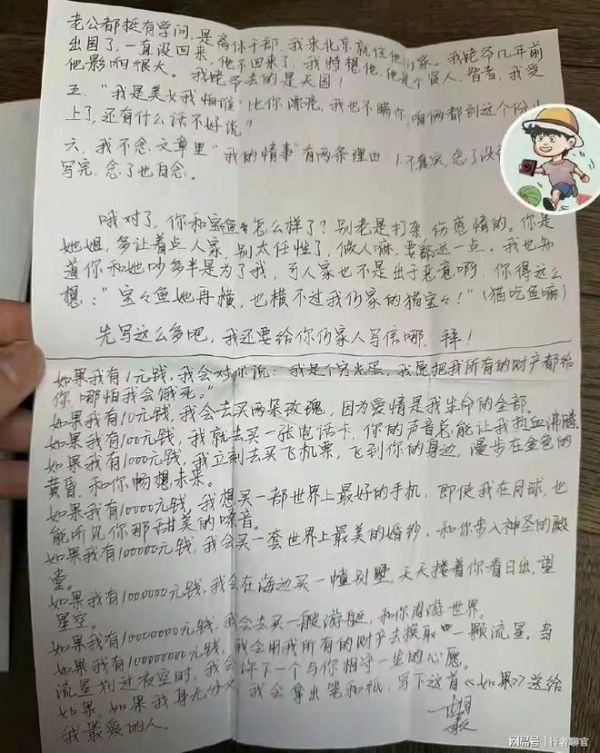 老公都挺有学问，是离休干部，我来北京就住他们家。我姥爷几年前
出国了，一直没回来，他不回来了，我特想他，他是个好人、智者，我受
他影响很大。我姥爷去的是天国！
五、“我是美女我怕谁！比你漂亮，我也不瞒你，咱俩都到这个份儿
上了，还有什么话不好说”
六、我不念。文章里“我的情事”有两条理由 1.不真实，念了没
写完，念了也白念。
哦对了，你和宝鱼鱼怎么样了？别老是打架，伤感情的。你是
她姐，多让着点人家，别太任性了，做人嘛，要豁达一点。我也知
道你和她吵多半是为了我，可人家也不是出于恶意啊，你得这么
想：“宝宝鱼她再横，也横不过我们家的猫宝宝！”（猫吃鱼嘛）
先写这么多吧，我还要给你们家人写信哪，拜！
如果我有1元钱，我会对你说：我是个穷光蛋，我愿把我所有的财产都给
你，哪怕我会饿死。”
如果我有10元钱，我会去买两朵玫瑰，因为爱情是我生命的全部。
如果我有100元钱，我就去买一张电话卡，你的声音总能让我热血沸腾。
如果我有1000元钱，我立刻去买飞机票，飞到你的身边，漫步在金色的
黄昏，和你畅想未来。
如果我有10000元钱，我想买一部世界上最好的手机，即使我在月球，也
能听见你那甜美的嗓音。
如果我有100000元钱，我会买一套世界上最美的婚纱，和你步入神圣的殿
堂。
如果我有1000000元钱，我会在海边买一幢别墅，天天搂着你看日出，望
星空。
如果我有10000000元钱，我会去买一艘游艇，和你周游世界。
如果我有100000000元钱，我会用我所有的财产去换取一颗流星，当
流星划过夜空时，我会许下一个与你相守一生的心愿。
如果，如果我身无分文，我会拿出笔和纸，写下这首《如果》送给
我最爱的人。
搜狐号@行者聊官